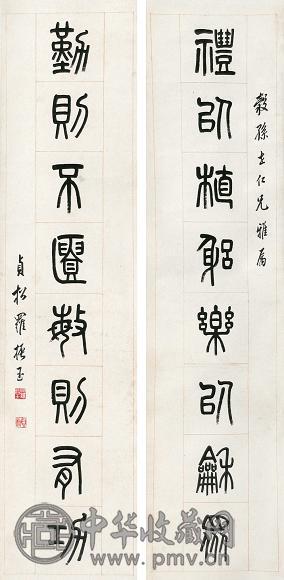 穀孫世仁兄雅屬
禮以植躳樂以龢眾
勤則不匱敏則有功
貞松羅振玉
中华收藏网
www.pmv.cn